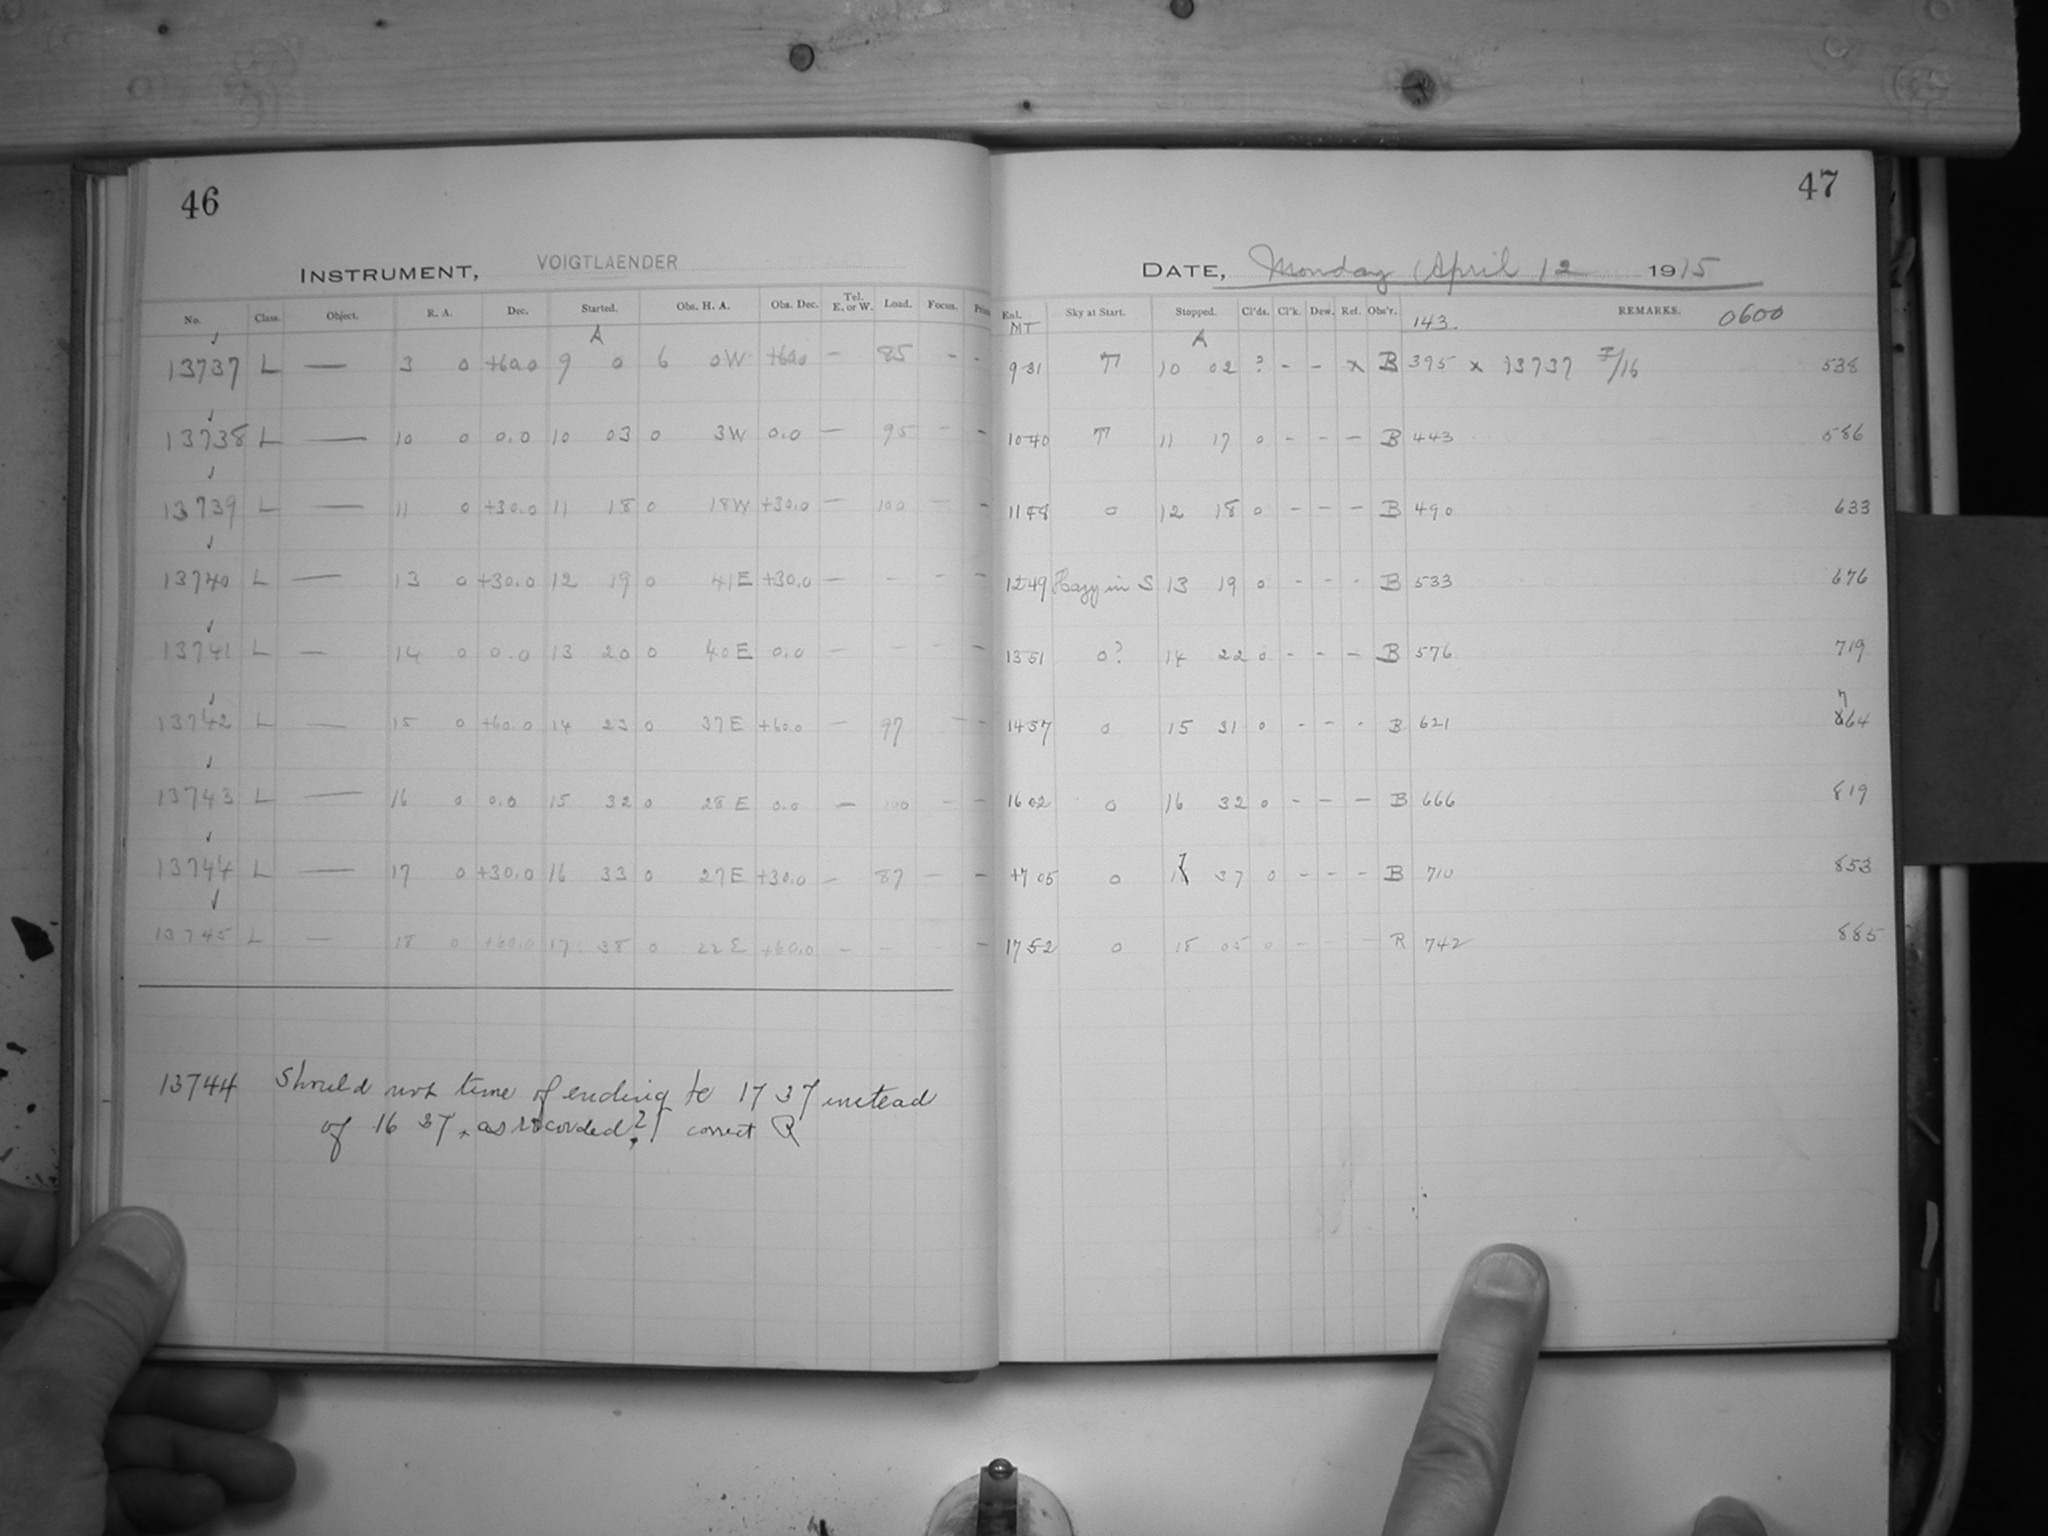 46
INSTRUMENT, VOIGTLAENDER
No. Class. Object. R. A. Dec. Started. Obs. H. A. Obs. Dec. Tel. E. or W. Load. Focus.
A
13737 L — 3 0 +60.0 9 0 6 0W +60.0 — 85 - -
13738 L — 10 0 0.0 10 03 0 3W 0.0 — 95 - -
13739 L — 11 0 +30.0 11 18 0 18W +30.0 — 100 - -
13740 L — 13 0 +30.0 12 19 0 41E +30.0 — - - -
13741 L — 14 0 0.0 13 20 0 40E 0.0 — - - -
13742 L — 15 0 +60.0 14 23 0 37E +60.0 — 97 - -
13743 L — 16 0 0.0 15 32 0 28E 0.0 — 100 - -
13744 L — 17 0 +30.0 16 33 0 27E +30.0 — 87 - -
13745 L — 18 0 +60.0 17 38 0 22E +60.0 — - -
13744 Should not time of ending be 17 37 instead
of 16 37, as recorded? correct R
47
DATE, Monday April 12 1915
Enl. Sky at Start. Stopped. Cl'ds. Cl'k. Dew. Ref. Obs'r. REMARKS.
MT A 143. 0600
9 31 π 10 02 ? - - x B 395 x 13737 7/16 538
10 40 π 11 17 0 - - - B 443 586
11 48 0 12 18 0 - - - B 490 633
12 49 Hazy in S 13 19 0 - - - B 533 676
13 51 0? 14 22 0 - - - B 576 719
14 57 0 15 31 0 - - - B 621 764
16 02 0 16 32 0 - - - B 666 819
17 05 0 17 37 0 - - - B 710 853
17 52 0 18 05 0 - - - R 742 885